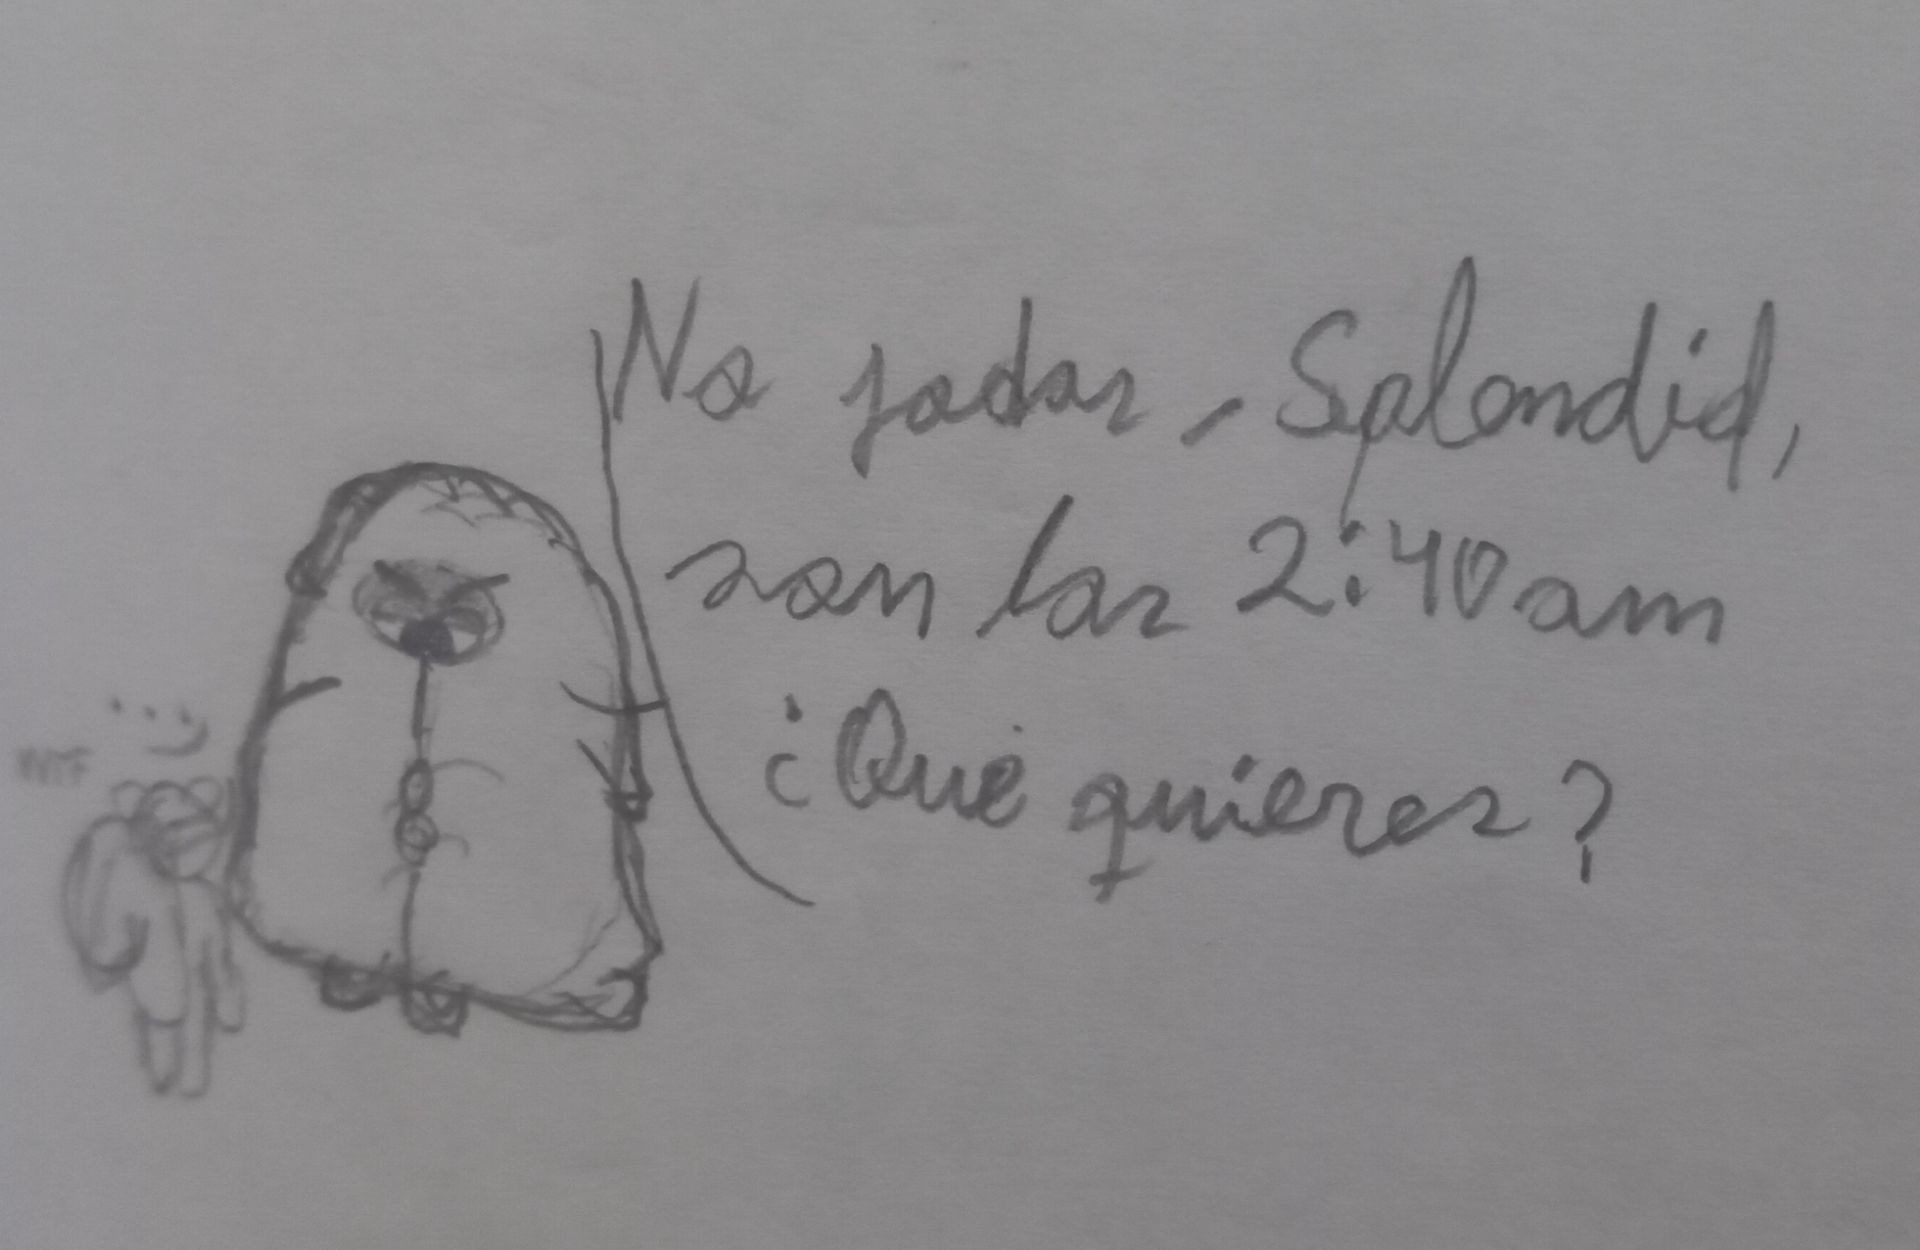 No jodas, Splendid,
son las 2:40 am
¿Qué quieres?
WTF